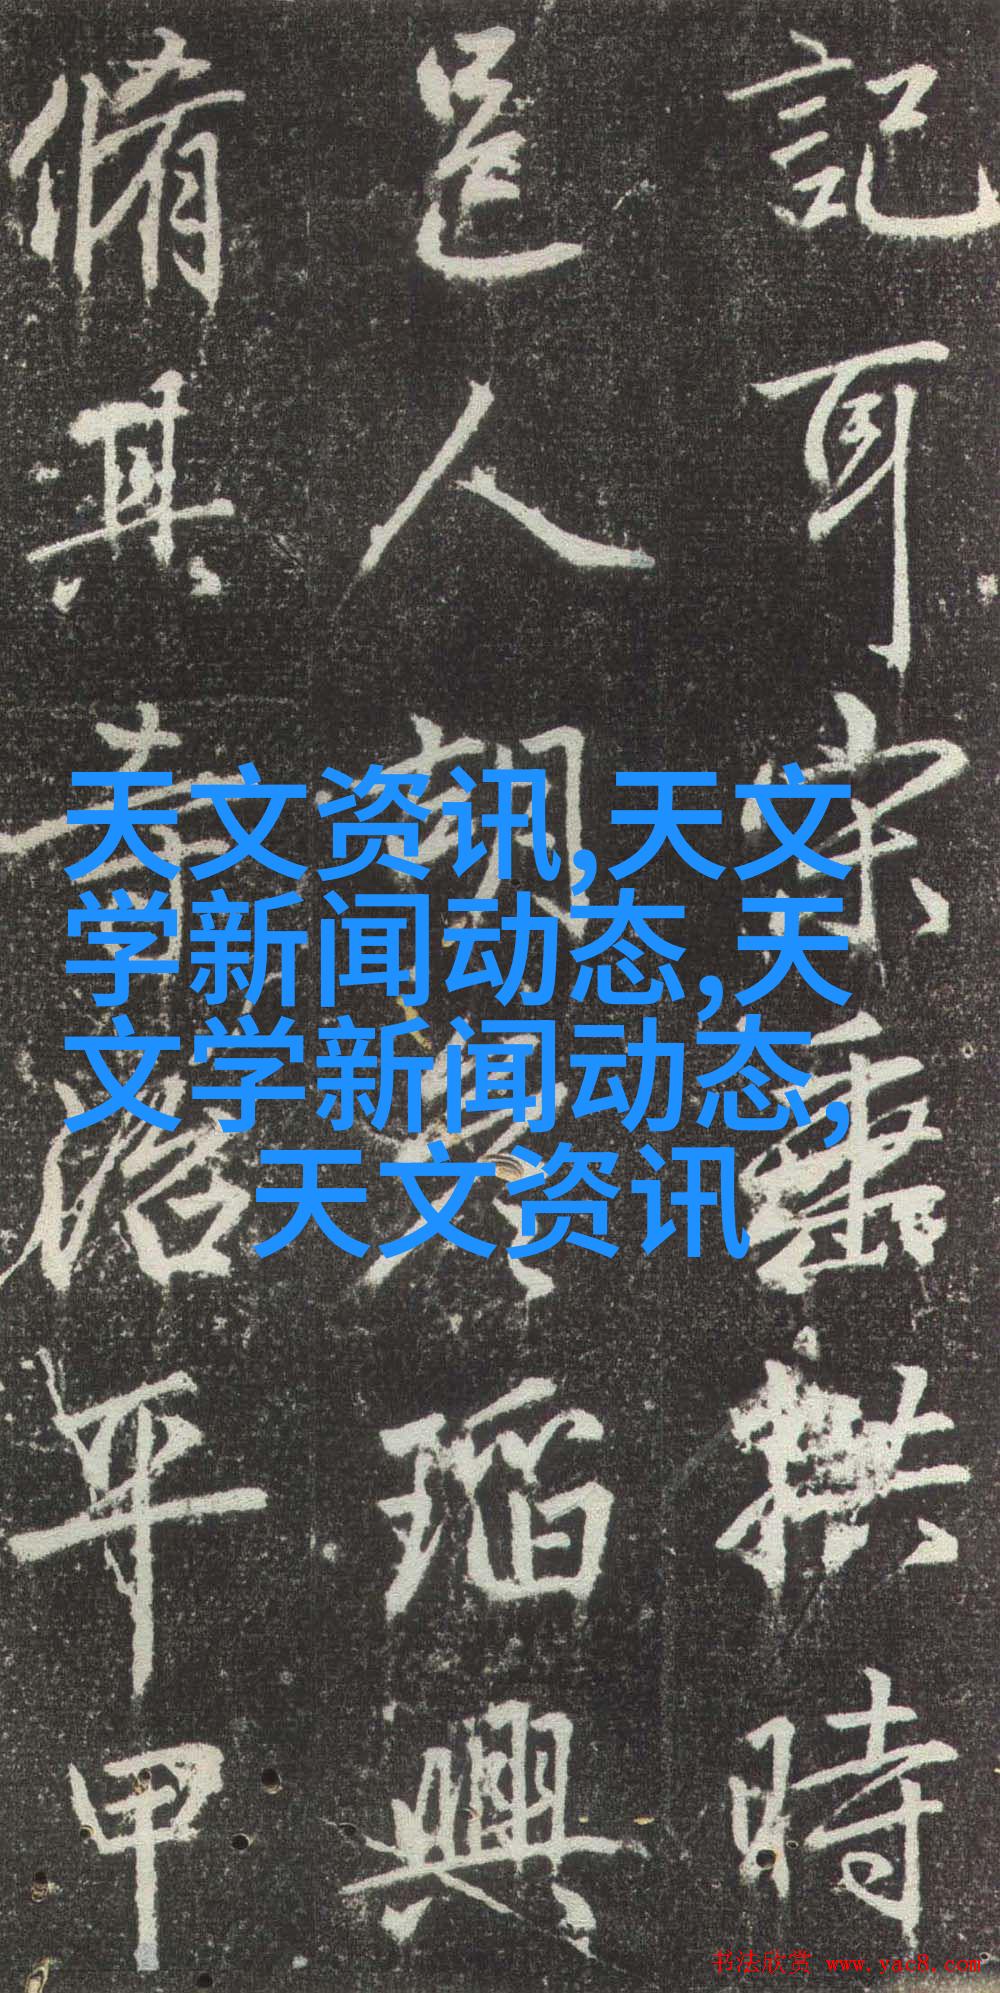 記耳宗垂拱時
邑人胡瑫興
脩其寺治平甲
天文资讯,天文
学新闻动态,天
文学新闻动态,
天文资讯
书法欣赏 www.yac8.com